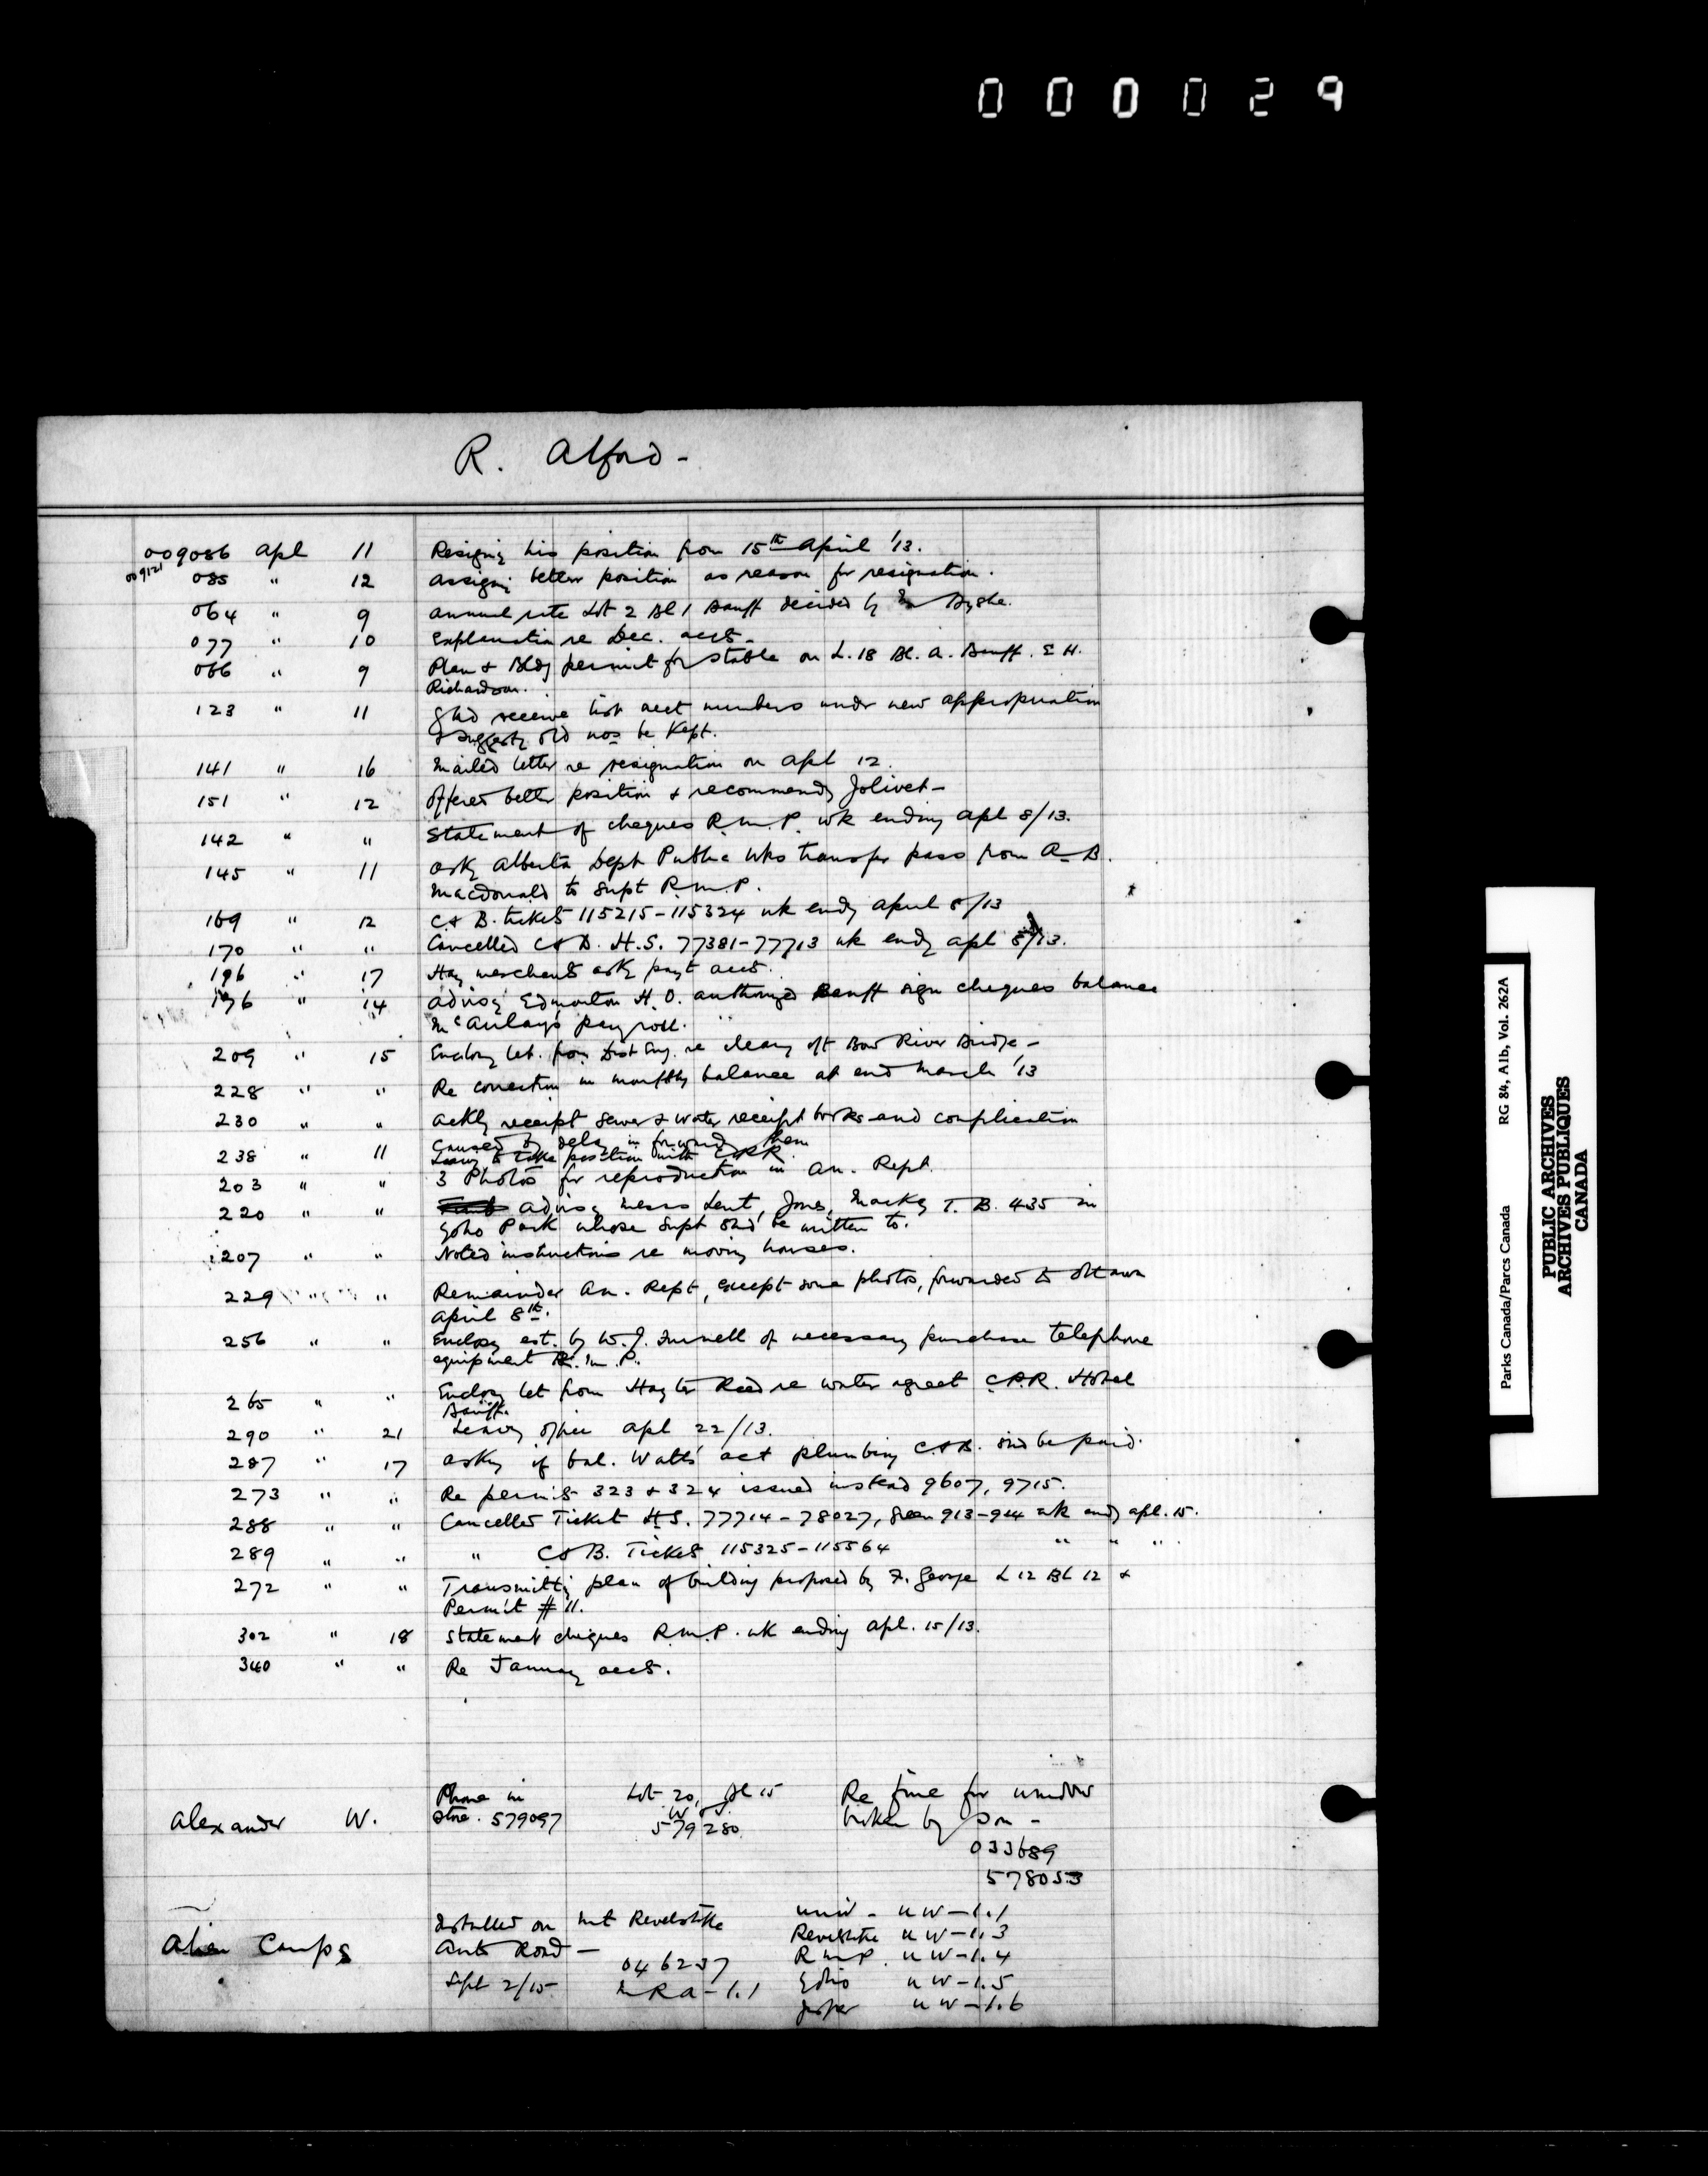 000029
R. Alford -
009086 Apl 11 Resigng his position from 15th April '13.
009121
085 " 12 Assigng better position as reason for resignation.
064 " 9 Annual rate Lot 2 Bl 1 Banff decided by
077 " 10 Explanation re Dec. accts.
066 " 9 Plan & Bldg permit for stable on L. 18 Bl. A. Banff. E H.
Richardson.
123 " 11 Shd receive list acct numbers under new appropriation
& suggests old nos be kept.
141 " 16 Mailed letter re resignation on Apl 12.
151 " 12 Offered better position & recommends Jolivet -
142 " " Statement of cheques R.M.P. wk ending Apl 8/13.
145 " 11 Askg Alberta Dept Public Wks transfer pass from A B.
Macdonald to Supt R.M.P.
169 " 12 C & B. tickets 115215-115324 wk endg April 8/13
170 " " Cancelled C & B. H.S. 77381-77713 wk endg Apl 8/13.
196 " 17 Hay merchants askg payt accts.
196 " 14 Advisg Edmonton H.O. authorized Banff sign cheques balance
McAulay's pay roll.
209 " 15 Enclosg let. from Dist Eng. re cleang off Bow River Bridge -
228 " " Re correction in monthly balance at end March '13
230 " " Ackg receipt sewer & water receipt books and complication
caused by delay in forwardg them
238 " 11 Leavg to take position with CPR.
203 " " 3 Photos for reproduction in An. Rept.
220 " " Advisg Messrs Lent, Jones, Mackay T. B. 435 in
Yoho Park whose Supt shd be written to.
207 " " Noted instructions re moving houses.
229 " " Remainder An. Rept, except some photos, forwarded to Ottawa
April 8th.
256 " " Enclosg est. by W.J. of necessary purchase telephone
equipment R.M.P.
265 " " Enclosg let from Hayter Reed re water agreet C.P.R. Hotel
Banff.
290 " 21 Leavg office Apl 22/13.
287 " 17 Askg if bal. Watts' act plumbing C.&B. shd be paid.
273 " " Re permits 323 & 324 issued instead 9607, 9715.
288 " " Cancelled Ticket H.S. 77714-78027, Green 913-944 wk endg apl. 15.
289 " " " C & B. Tickets 115325-115564 " " "
272 " " Transmittg plan of building proposed by F. George L 12 Bl 12 &
Permit # 11.
302 " 18 Statement cheques R.M.P. wk ending Apl. 15/13.
340 " " Re January accts.
Alexander W.
Phone in
store. 579097
Lot 20, Bl 15
579280
Re fine for window
broken by son -
033689
578053
Alien Camps
Installed on Mt Revelstoke
Auto Road -
Sept 2/15
046237
MRA-1.1
Univ - UW-1.1
Revelstoke UW-1.3
RMP. UW-1.4
Yoho UW-1.5
Jasper UW-1.6
Parks Canada/Parcs Canada RG 84, A1b, Vol. 262A
PUBLIC ARCHIVES
ARCHIVES PUBLIQUES
CANADA